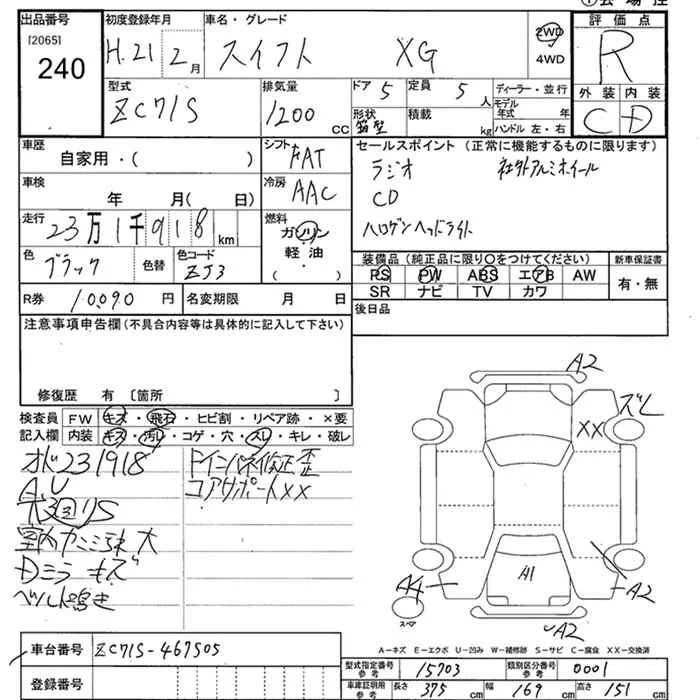 出品番号
[2065]
240
初度登録年月
H.21 2月
車名・グレード
スイフト XG
2WD
4WD
評価点
R
外装 内装
C D
型式
ZC71S
排気量
1200 cc
ドア 5
定員 5 人
形状 箱型
積載 kg
ディーラー・並行
モデル年式 年
ハンドル 左・右
車歴
自家用・( )
シフト FAT
冷房 AAC
セールスポイント (正常に機能するものに限ります)
ラジオ 社外アルミホイール
CD
ハロゲンヘッドライト
車検
年 月( 日)
走行
23万1千918km
燃料
ガソリン
軽油
( )
色
ブラック
色替
色コード
ZJ3
装備品 (純正品に限り○をつけてください)
PS PW ABS エアB AW
SR ナビ TV カワ
新車保証書
有・無
R券 10,090円
名変期限 月 日
後日品
注意事項申告欄(不具合内容等は具体的に記入して下さい)
修復歴 有 〔箇所 〕
検査員 FW キズ・飛石・ヒビ割・リペア跡・×要
記入欄 内装 キズ・汚レ・コゲ・穴・スレ・キレ・破レ
オド231918
A,U
室内カミミ
Dミラーキズ
ベルト鳴き
ドインパネ修正歪
コアサポートXX
A2
ズレ
XX
A4
A1
A2
A2
スペア
A-キズ E-エクボ U-凹み W-補修跡 S-サビ C-腐食 XX-交換済
車台番号 ZC71S-467505
登録番号
型式指定番号 参考 15703
類別区分番号 参考 0001
車庫証明用 参考 長さ 375 cm 幅 169 cm 高さ 151 cm